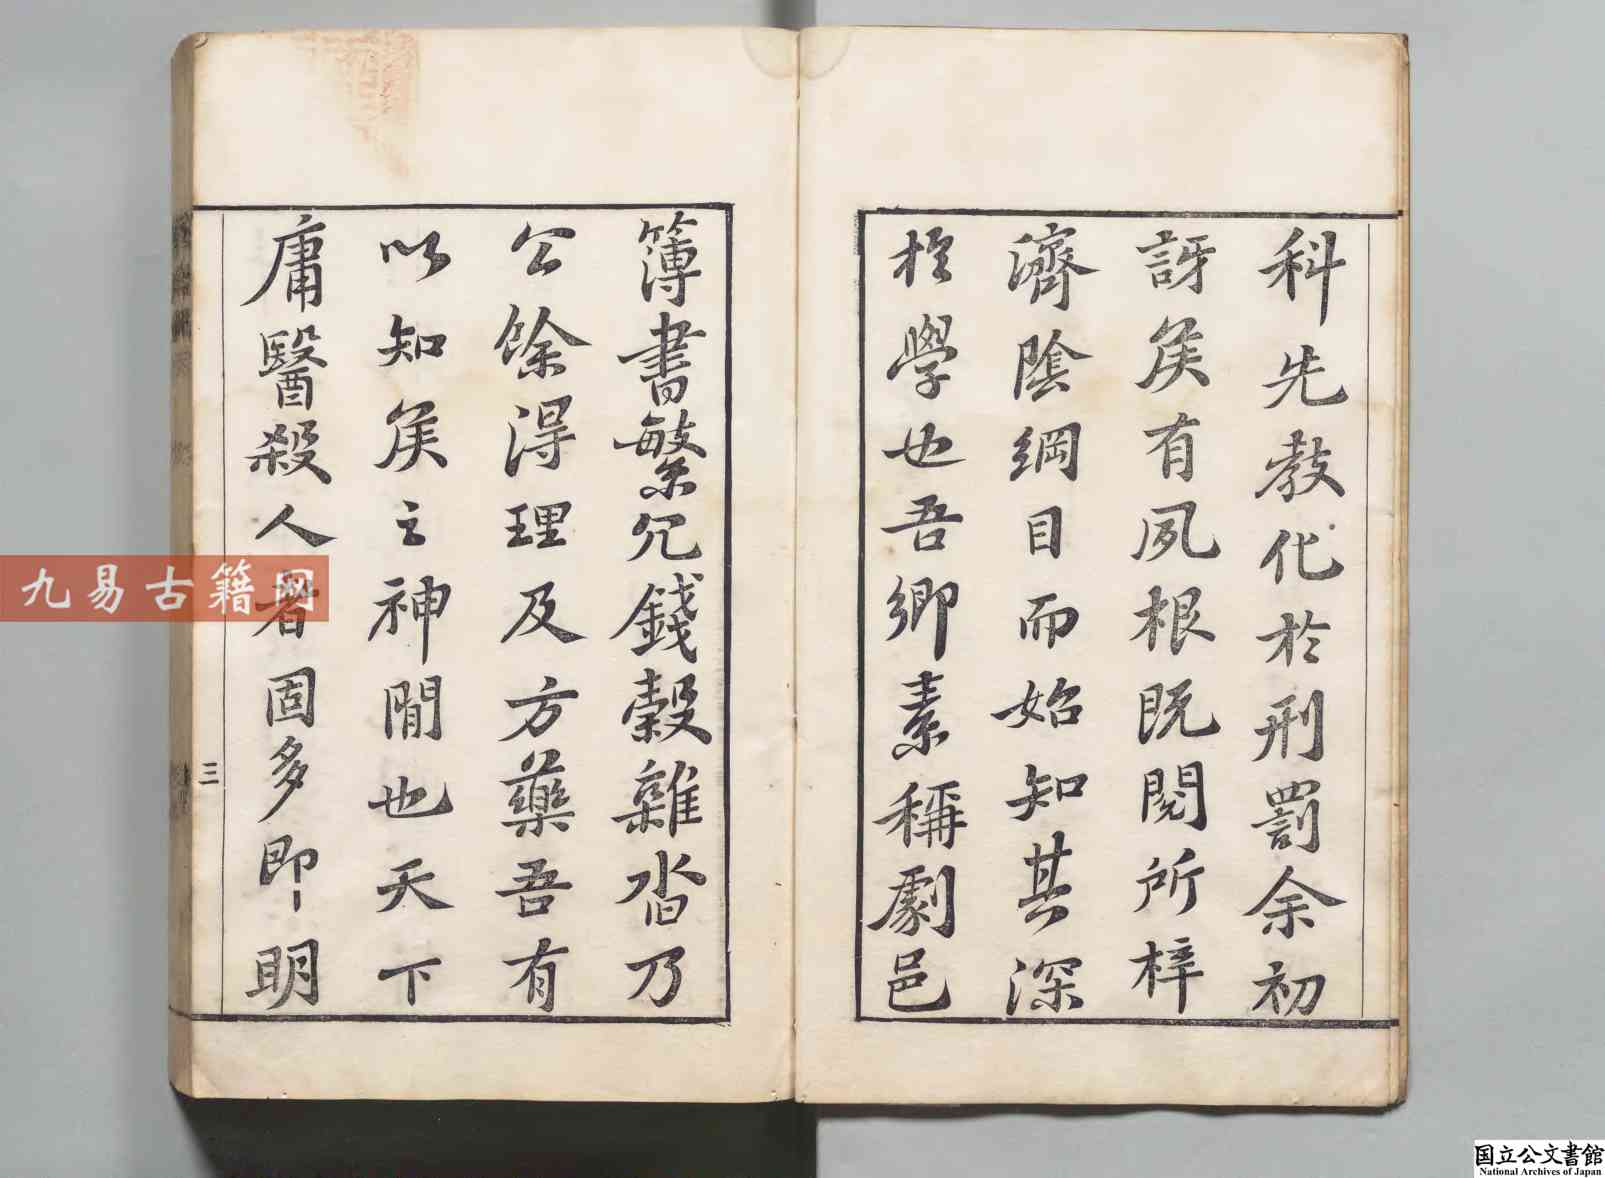 科先教化於刑罰余初
訝矦有夙根既閱所梓
濟陰綱目而始知其深
於學也吾鄉素稱劇邑
簿書繁冗錢穀雜沓乃
公餘得理及方藥吾有
以知矦之神閒也天下
庸醫殺人者固多即明
三
九易古籍网
国立公文書館
National Archives of Japan